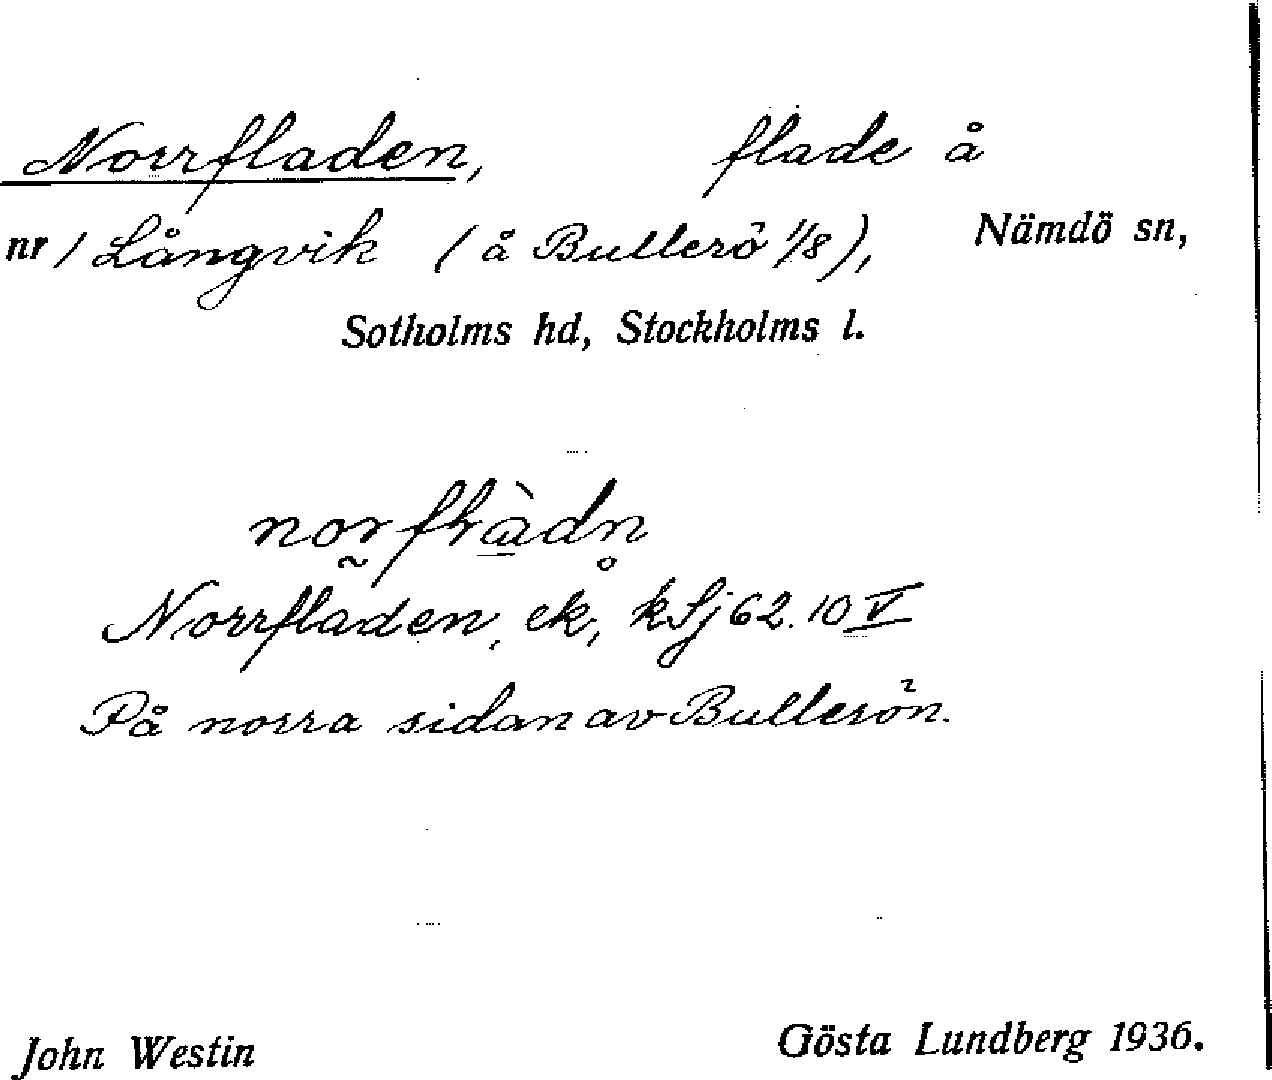 Norrfladen, flade å
nr 1 Långvik (å Bullerö 1/8), Nämdö sn,
Sotholms hd, Stockholms l.
Norrfladen, ek, kSj 62. 10 V
På norra sidan av Bullerön.
John Westin Gösta Lundberg 1936.